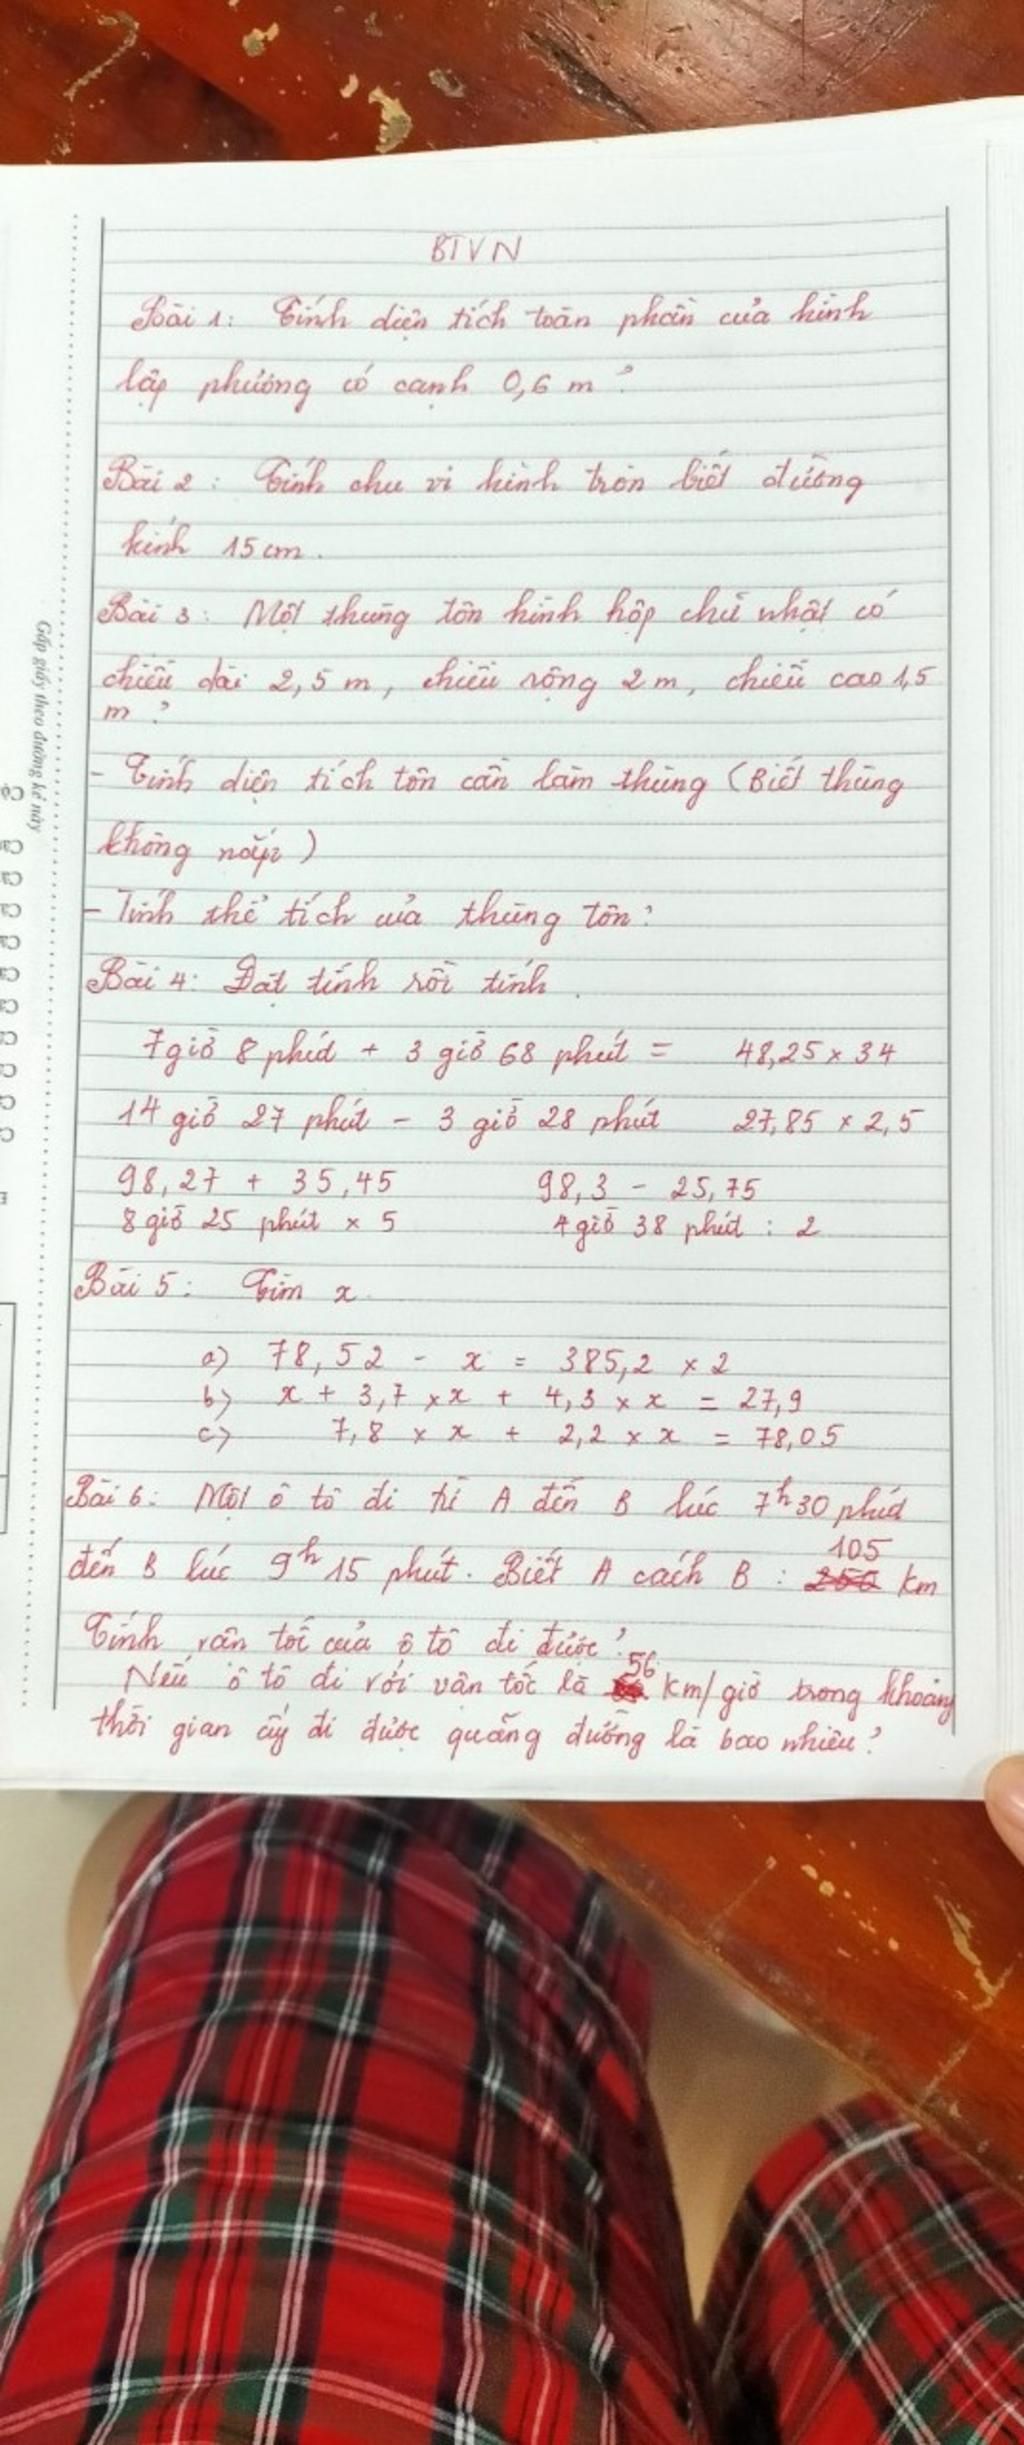 BTVN
Bài 1: Tính diện tích toàn phần của hình
lập phương có cạnh 0,6 m?
Bài 2: Tính chu vi hình tròn biết đường
kính 15 cm.
Bài 3: Một thùng tôn hình hộp chữ nhật có
chiều dài 2,5 m, chiều rộng 2 m, chiều cao 1,5
m?
- Tính diện tích tôn cần làm thùng (Biết thùng
không nắp)
- Tính thể tích của thùng tôn?
Bài 4: Đặt tính rồi tính.
7 giờ 8 phút + 3 giờ 68 phút = 48,25 x 34
14 giờ 27 phút - 3 giờ 28 phút 27,85 x 2,5
98,27 + 35,45 98,3 - 25,75
8 giờ 25 phút x 5 4 giờ 38 phút : 2
Bài 5: Tìm x
a) 78,52 - x = 385,2 x 2
b) x + 3,7 x x + 4,3 x x = 27,9
c) 7,8 x x + 2,2 x x = 78,05
Bài 6: Một ô tô đi từ A đến B lúc 7h 30 phút
đến B lúc 9h 15 phút. Biết A cách B : 105 km
Tính vận tốc của ô tô đi được?
Nếu ô tô đi với vận tốc là 56 km/giờ trong khoảng
thời gian ấy đi được quãng đường là bao nhiêu?
Gấp giấy theo đường kẻ này